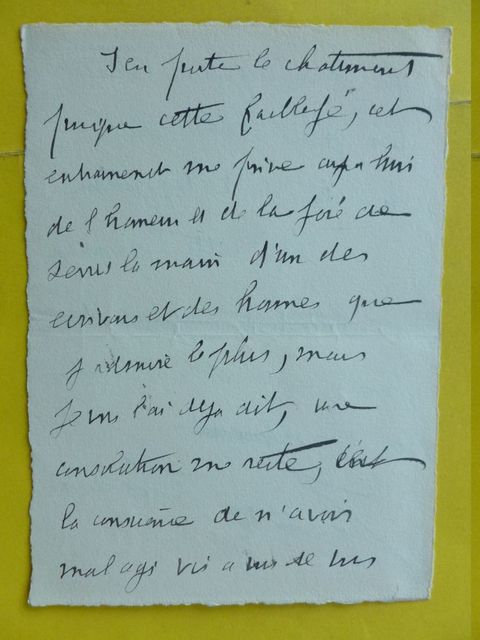 J'en porte le chatiment
puisque cette faiblesse, cet
entrainement me prive aujourd'hui
de l'honneur et de la joie de
serrer la main d'un des
ecrivains et des hommes que
j'admire le plus, mais
je vous l'ai deja dit, une
consolation me reste, c'est
la conscience de n'avoir
mal agi vis a vis de vous